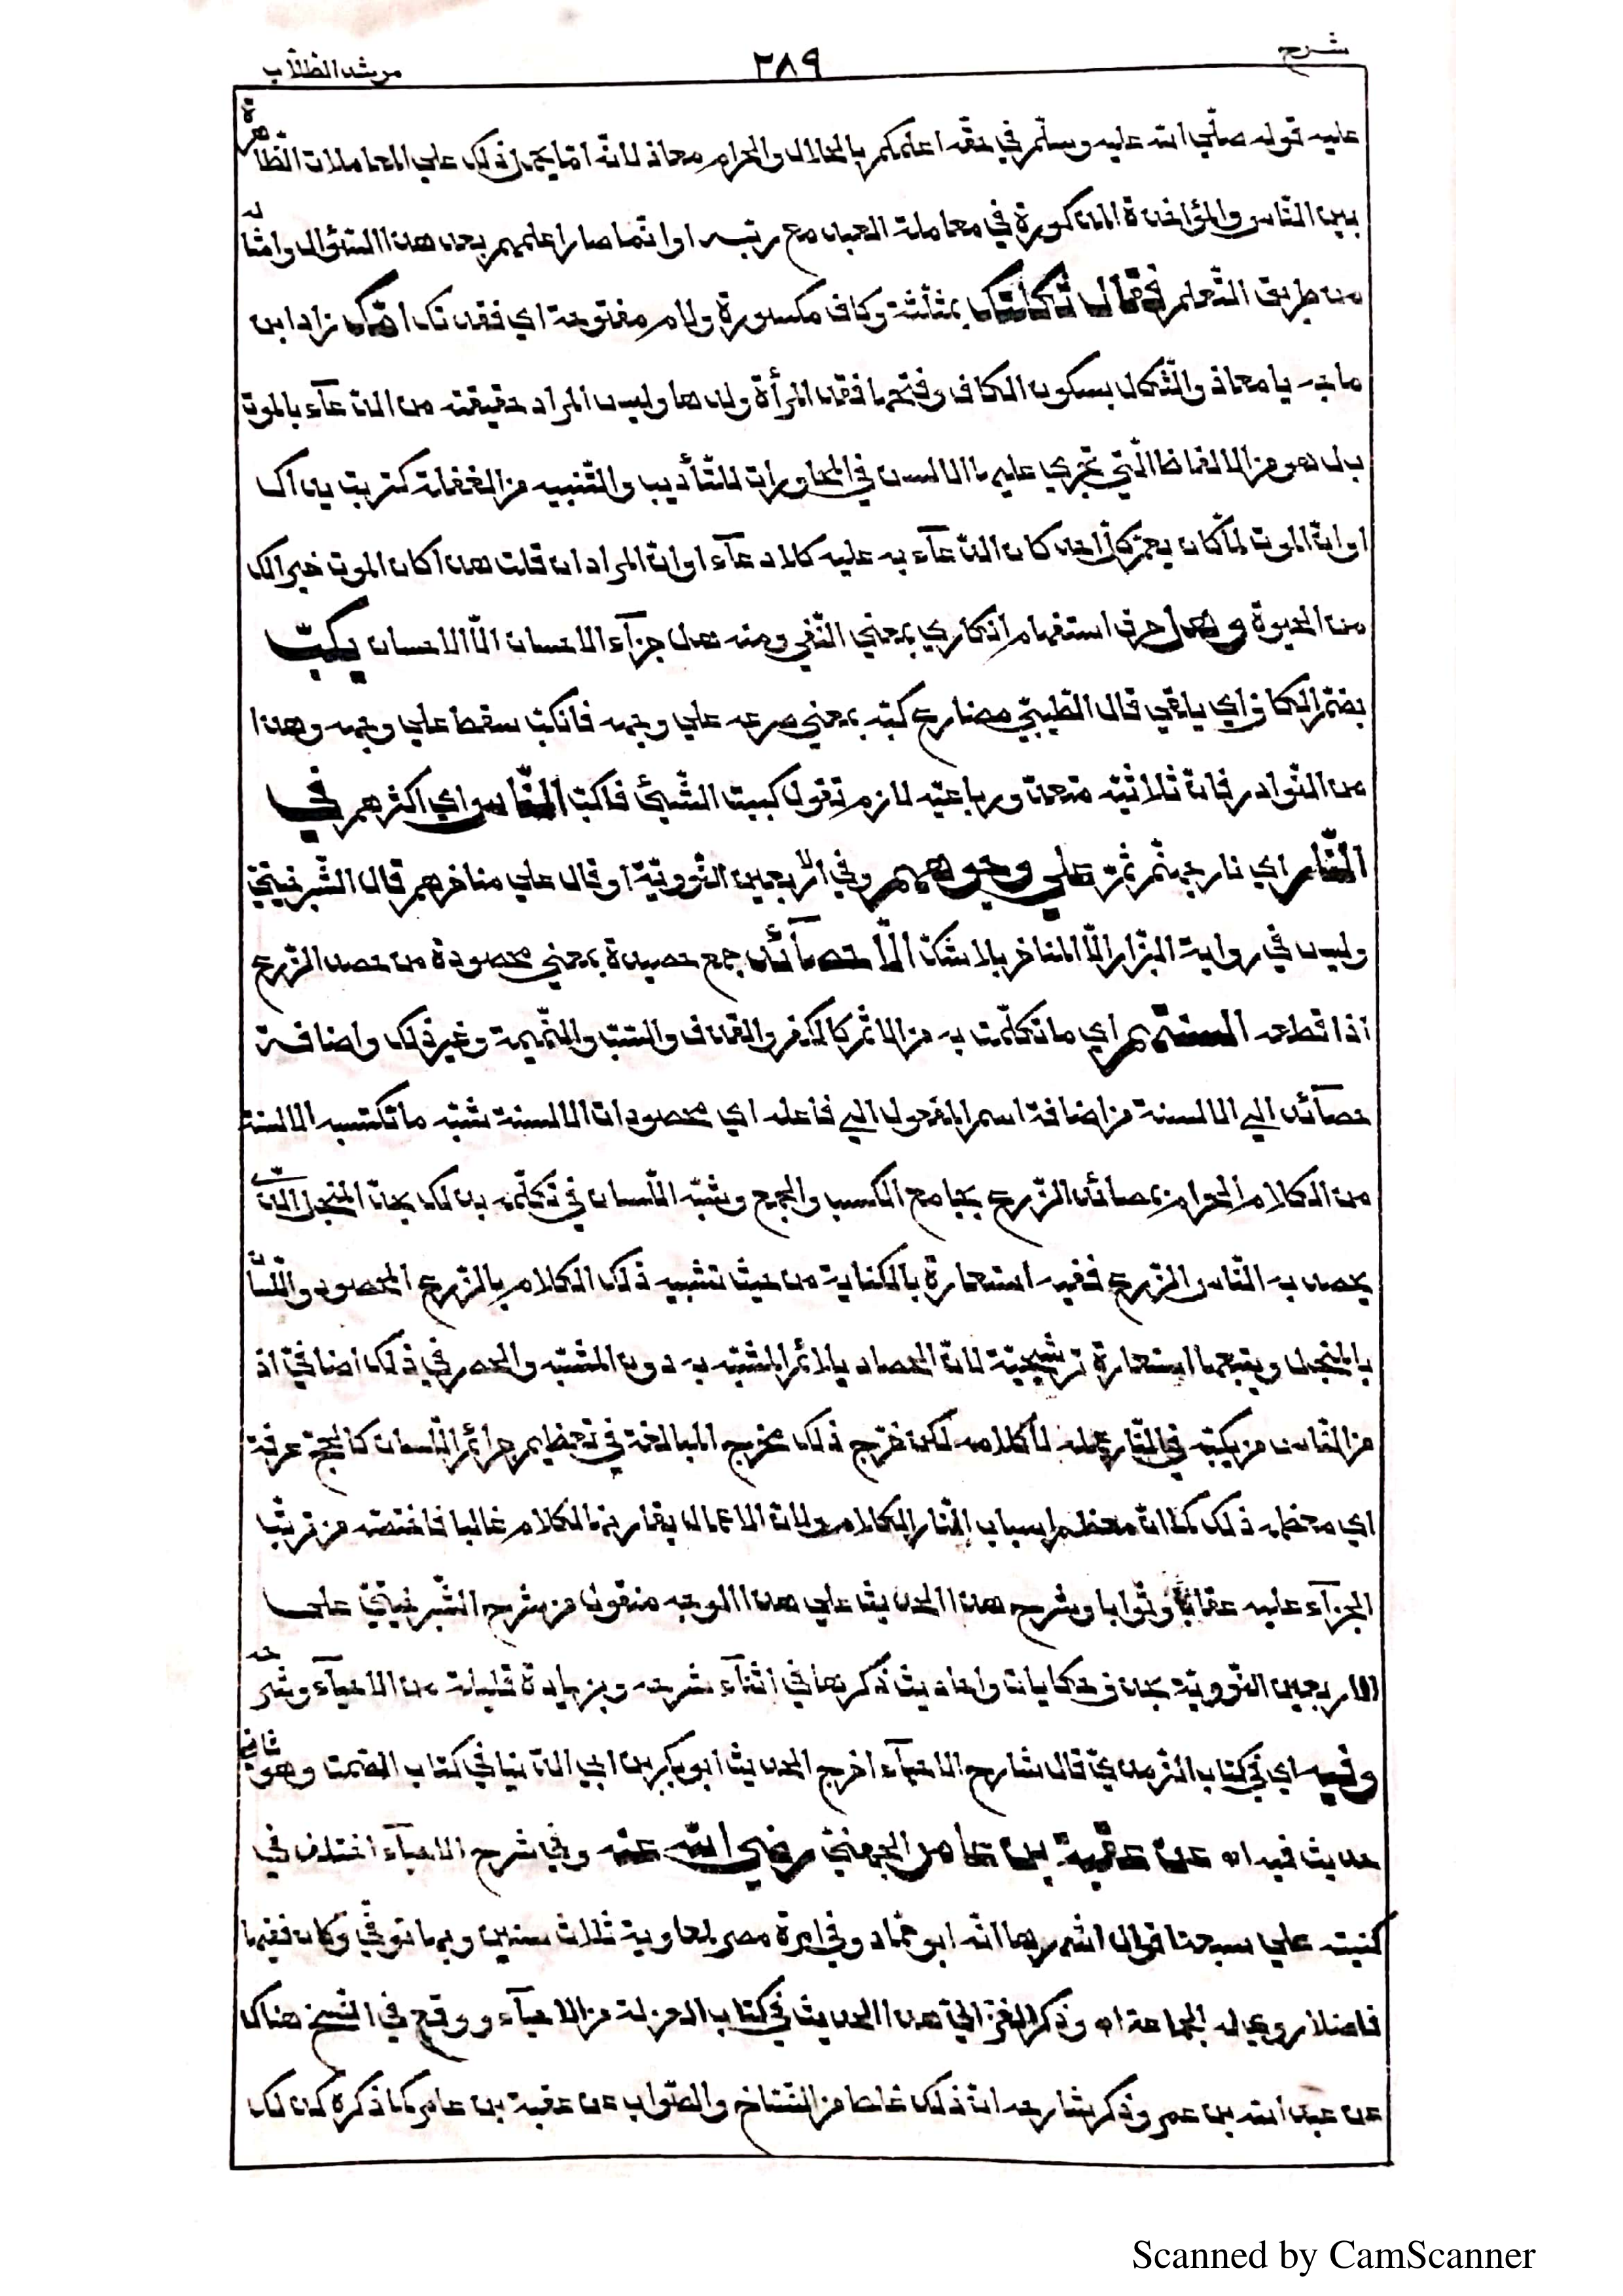 شرح
٢٨٩
مرشد الطلاب
عليه قوله صلّي الله عليه وسلّم في حقّه اعلمكم بالحلال والحرام معاذ لانّه انّما يحمل ذلك علي المعاملات الظاهرة
بين النّاس والمؤاخذة المذكورة في معاملة العبد مع ربّه او انّما صار اعلمهم بعد هذا السّؤال وامثاله
من طريق التّعلم فقال ثكلتك بمثلّثة وكاف مكسورة ولام مفتوحة اي فقدتك امّك زاد ابن
ماجه يا معاذ والثّكل بسكون الكاف وفتحها فقد المرأة ولدها وليس المراد حقيقته من الدّعآء بالموت
بل هو من الالفاظ الّتي تجري عليها الالسن في المحاورات للتّأديب والتّنبيه من الغفلة كتربت يداك
او انّ الموت لمّا كان يعمّ كلّ احد كان الدّعآء به عليه كلا دعآء او انّ المراد ان قلت هذا كان الموت خيرا لك
من الحيوة وهل حرف استفهام انكاري بمعني النّفي ومنه هل جزآء الاحسان الّا الاحسان يكبّ
بضمّ الكاف اي يلقي قال الطّيبيّ مضارع كبّه بمعني صرعه علي وجهه فانكبّ سقط علي وجهه وهذا
من النّوادر فانّ ثلاثيّه متعدّ ورباعيّه لازم تقول كببت الشّيئ فاكبّ النّاس اي اكثرهم في
النّار اي نار جهنّم ثمّة علي وجوههم وفي الاربعين النّوويّة او قال علي مناخرهم قال الشّبرخيتيّ
وليس في رواية البزّار الّا المناخر بلا شكّ الّا حصآئد جمع حصيدة بمعني محصودة من حصد الزّرع
اذا قطعه السنتهم اي ما تكلّمت به من الاثم كالكفر والقذف والسّبّ والنّميمة وغير ذلك واضافة
حصآئد الي الالسنة من اضافة اسم المفعول الي فاعله اي محصودات الالسنة شبّه ما تكتسبه الالسنة
من الكلام الحرام بحصائد الزّرع بجامع الكسب والجمع وشبّه اللّسان في تكلّمه بذلك بحدّ المنجل الّذي
يحصد به النّاس الزّرع ففيه استعارة بالكناية من حيث تشبيه ذلك الكلام بالزّرع المحصود واللّسان
بالمنجل ويتبعها استعارة ترشيحيّة لانّ الحصاد يلائم المشبّه به دون المشبّه والحصر في ذلك اضافيّ اذ
من النّاس من يكبّه في النّار عمله لا كلامه لكن خرّج ذلك مخرج المبالغة في تعظيم جرائم اللّسان كالحجّ عرفة
اي معظمه ذلك كما انّ معظم اسباب النّار الكلام ولانّ الاعمال يقارنها الكلام غالبا فله حصّة من ترتّب
الجزآء عليه عقابا وثوابا وشرح هذا الحديث علي هذا الوجه منقول من شرح الشّبرخيتيّ علي
الاربعين النّوويّة بحذف حكايات واحاديث ذكرها في اثنآء شرحه وبزيادة قليلة من الاحيآء وشرحه
وفيه اي في كتاب التّرمذيّ قال شارح الاحيآء اخرج الحديث ابو بكر بن ابي الدّنيا في كتاب الصّمت وهو ثاني
حديث فيه اه عن عقبة بن عامر الجهنيّ رضي الله عنه وفي شرح الاحيآء اختلف في
كنيته علي سبعة اقوال اشهرها انّه ابو حمّاد وفي امرة مصر لمعاوية ثلاث سنين وبها توفّي وكان فقيها
فاضلا روي له الجماعة اه وذكر الغزاليّ هذا الحديث في كتاب العزلة من الاحيآء ووقع في النّسخ هناك
عن عبد الله بن عمر وذكر شارحه انّ ذلك غلط من النّسّاخ والصّواب عن عقبة بن عامر كما ذكره كذلك
Scanned by CamScanner